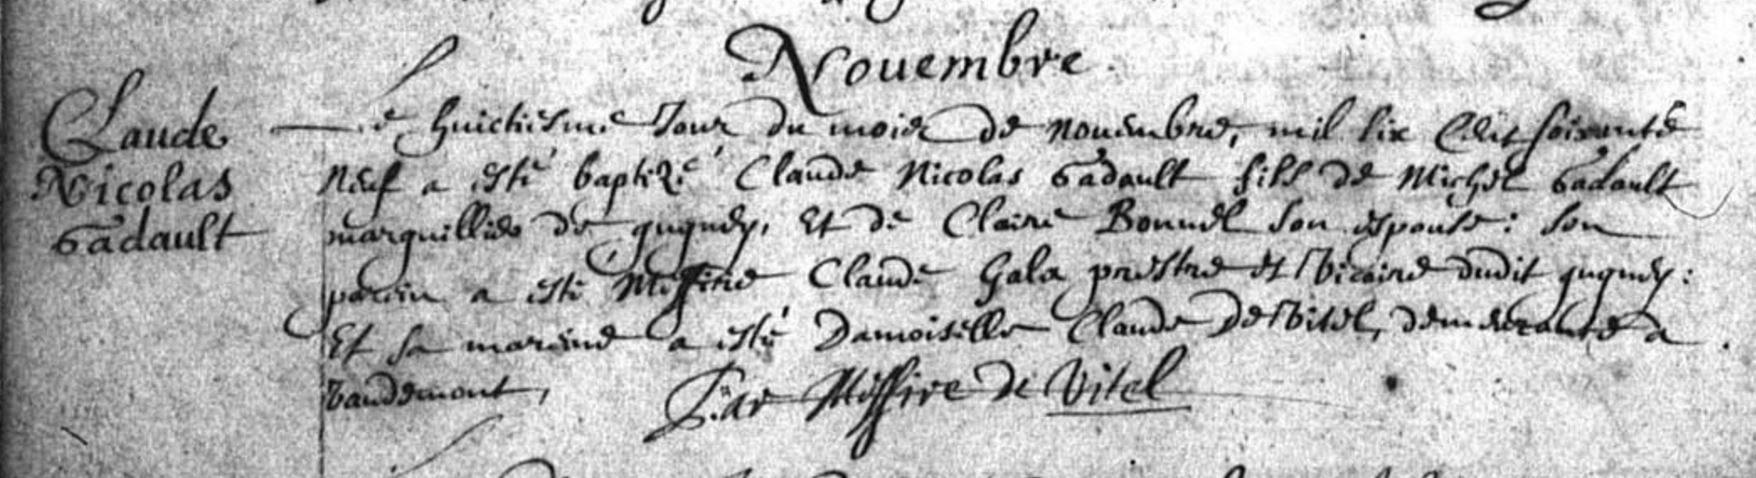 Nouembre
Claude
Nicolas
Gadault
Le huictiesme Jour du mois de nouembre, mil six Cent soixante
neuf a esté baptizé Claude Nicolas Gadault fils de Michel Gadault
marguillier de gugney, Et de Claire Bonnel son espouse : son
parin a esté Messire Claude Gala prestre et vicaire dudit gugney :
Et sa marine a esté Damoiselle Claude De Vitel, demeurante a
Vaudemont,
Par Messire de Vitel